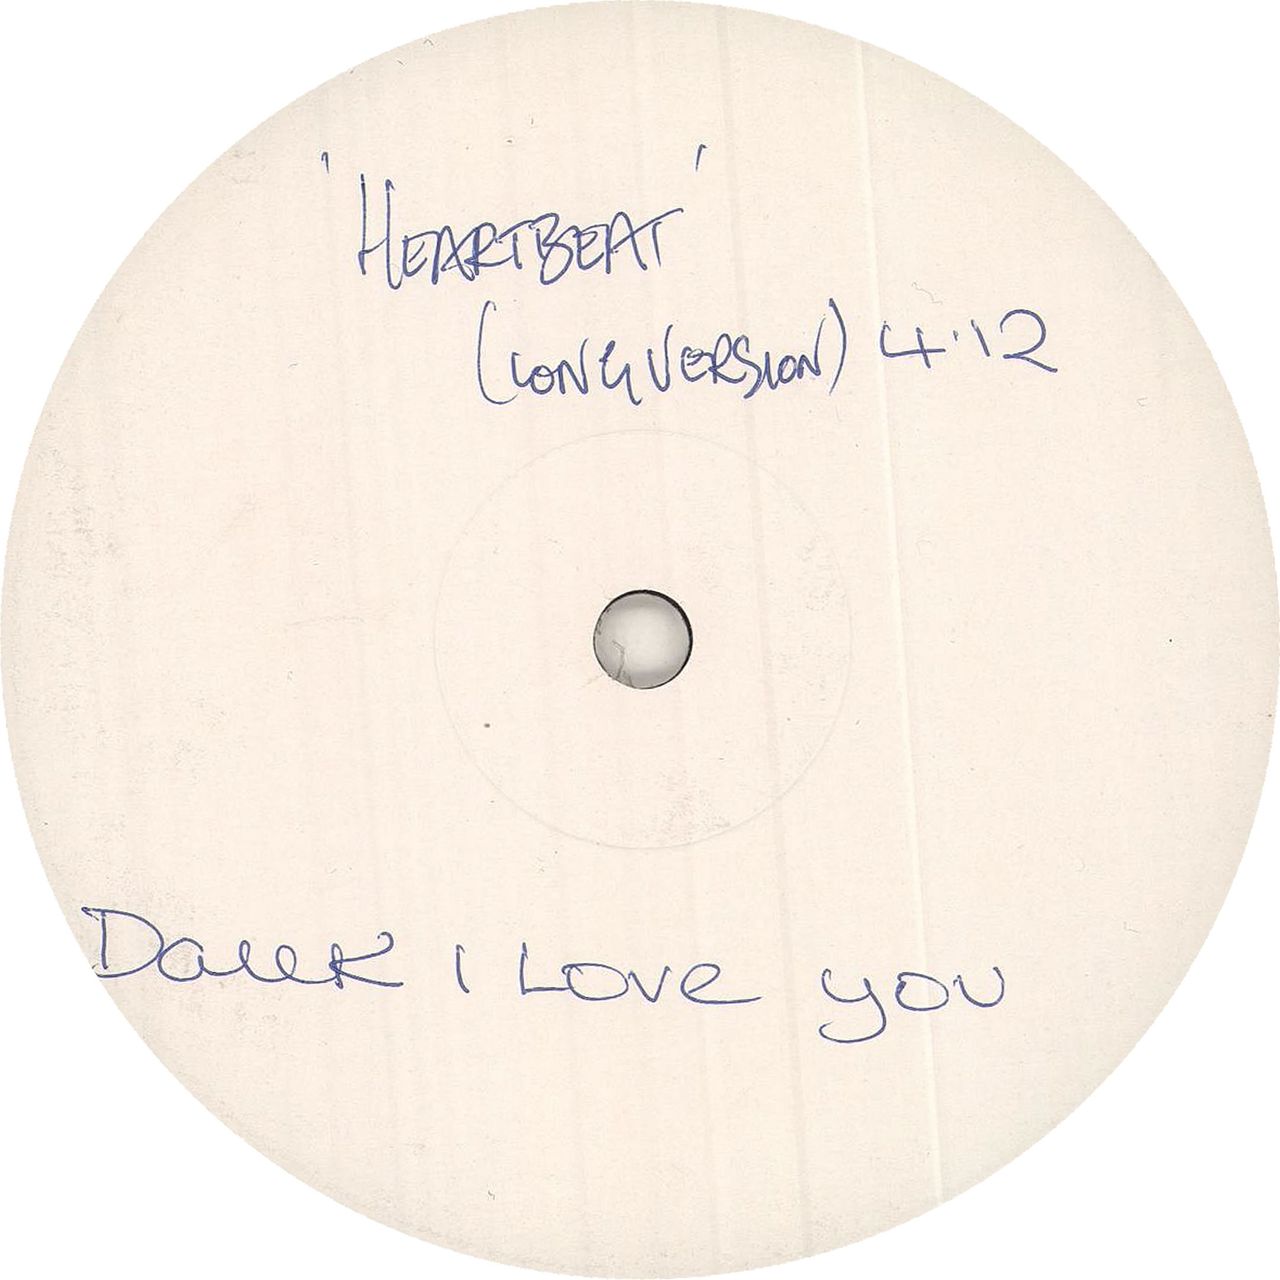 'HEARTBEAT'
(LONG VERSION) 4.12
Dalek I Love you